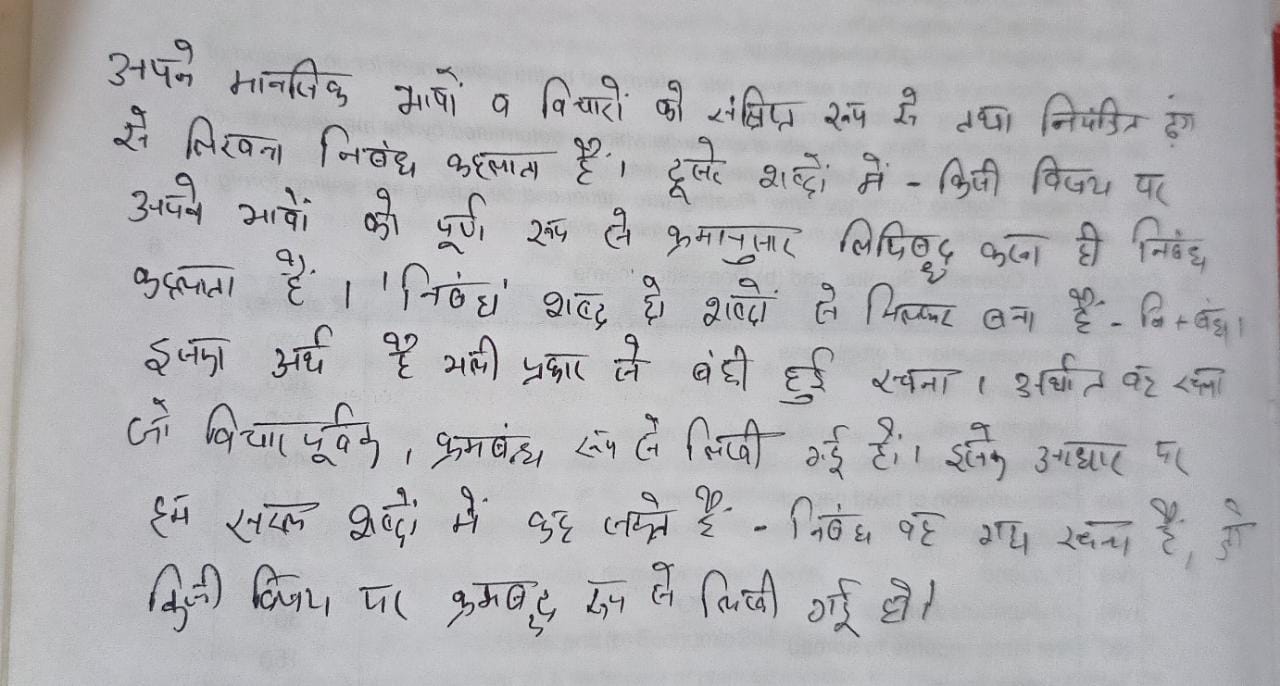 अपने मानसिक भावों व विचारों को संक्षिप्त रूप से तथा नियंत्रित ढंग
से लिखना निबंध कहलाता है। दूसरे शब्दों में - किसी विषय पर
अपने भावों को पूर्ण रूप से क्रमानुसार लिपिबद्ध करना ही निबंध
कहलाता है। 'निबंध' शब्द दो शब्दों से मिलकर बना है - नि + बंध।
इसका अर्थ है भली प्रकार से बंधी हुई रचना। अर्थात वह रचना
जो विचारपूर्वक, क्रमबंध्द रूप से लिखी गई हो। इसके आधार पर
हम सरल शब्दों में कह सकते हैं - निबंध वह गद्य रचना है, जो
किसी विषय पर क्रमबद्ध रूप से लिखी गई हो।